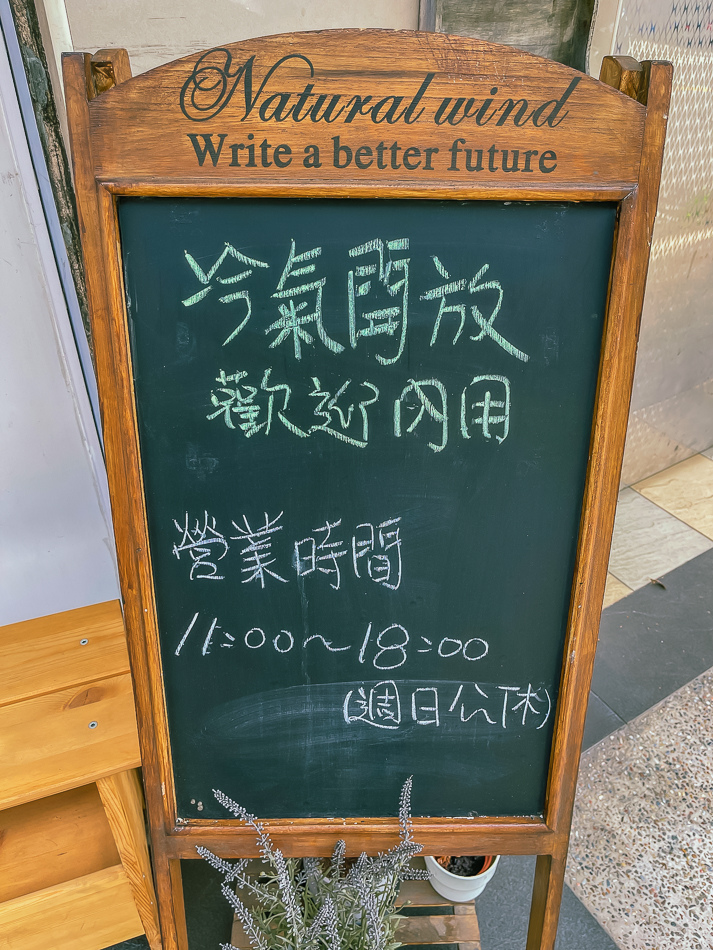 Natural wind
Write a better future
冷氣開放
歡迎內用
營業時間
11:00～18:00
(週日公休)